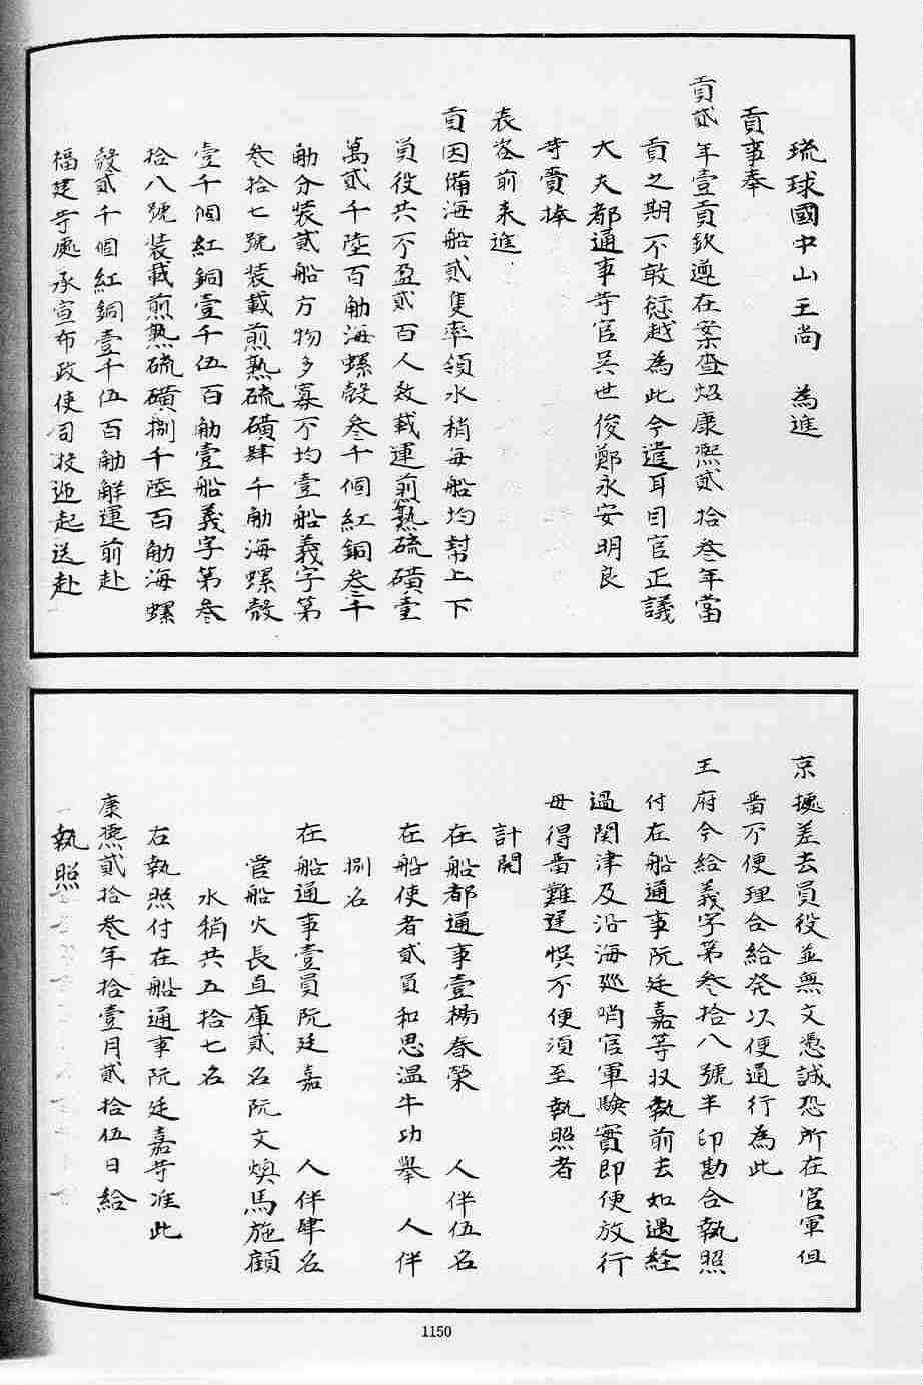 琉球國中山王尚　為進
貢事奉
貢貳年壹貢欽遵在案查炤康熙貳拾叁年當
貢之期不敢愆越為此今遣耳目官正議
大夫都通事等官吳世俊鄭永安明良
等賫捧
表咨前来進
貢因備海船貳隻率領水梢每船均幇上下
員役共不盈貳百人数載運煎熟硫磺壹
萬貳千陸百觔海螺殼叁千個紅銅叁千
觔分裝貳船方物多寡不均壹船義字第
叁拾七號装載煎熟硫磺肆千觔海螺殼
壹千個紅銅壹千伍百觔壹船義字第叁
拾八號装載煎熟硫磺捌千陸百觔海螺
殼貳千個紅銅壹千伍百觔解運前赴
福建等處承宣布政使司投逓起送赴
京擄差去員役並無文憑誠恐所在官軍但
畨不便理合給発以便通行為此
王府今給義字第叁拾八號半印勘合執照
付在船通事阮廷嘉等収執前去如遇経
過関津及沿海廵哨官軍験實即便放行
毋得畨難遅悞不便湏至執照者
計開
在船都通事壹員楊春榮　人伴伍名
在船使者貳員和思温牛功舉　人伴
捌名
在船通事壹員阮廷嘉　人伴肆名
管船火長直庫貳名阮文煥馬施顧
水梢共五拾七名
右執照付在船通事阮廷嘉等准此
康熙貳拾叁年拾壹月貳拾伍日給
執照
1150